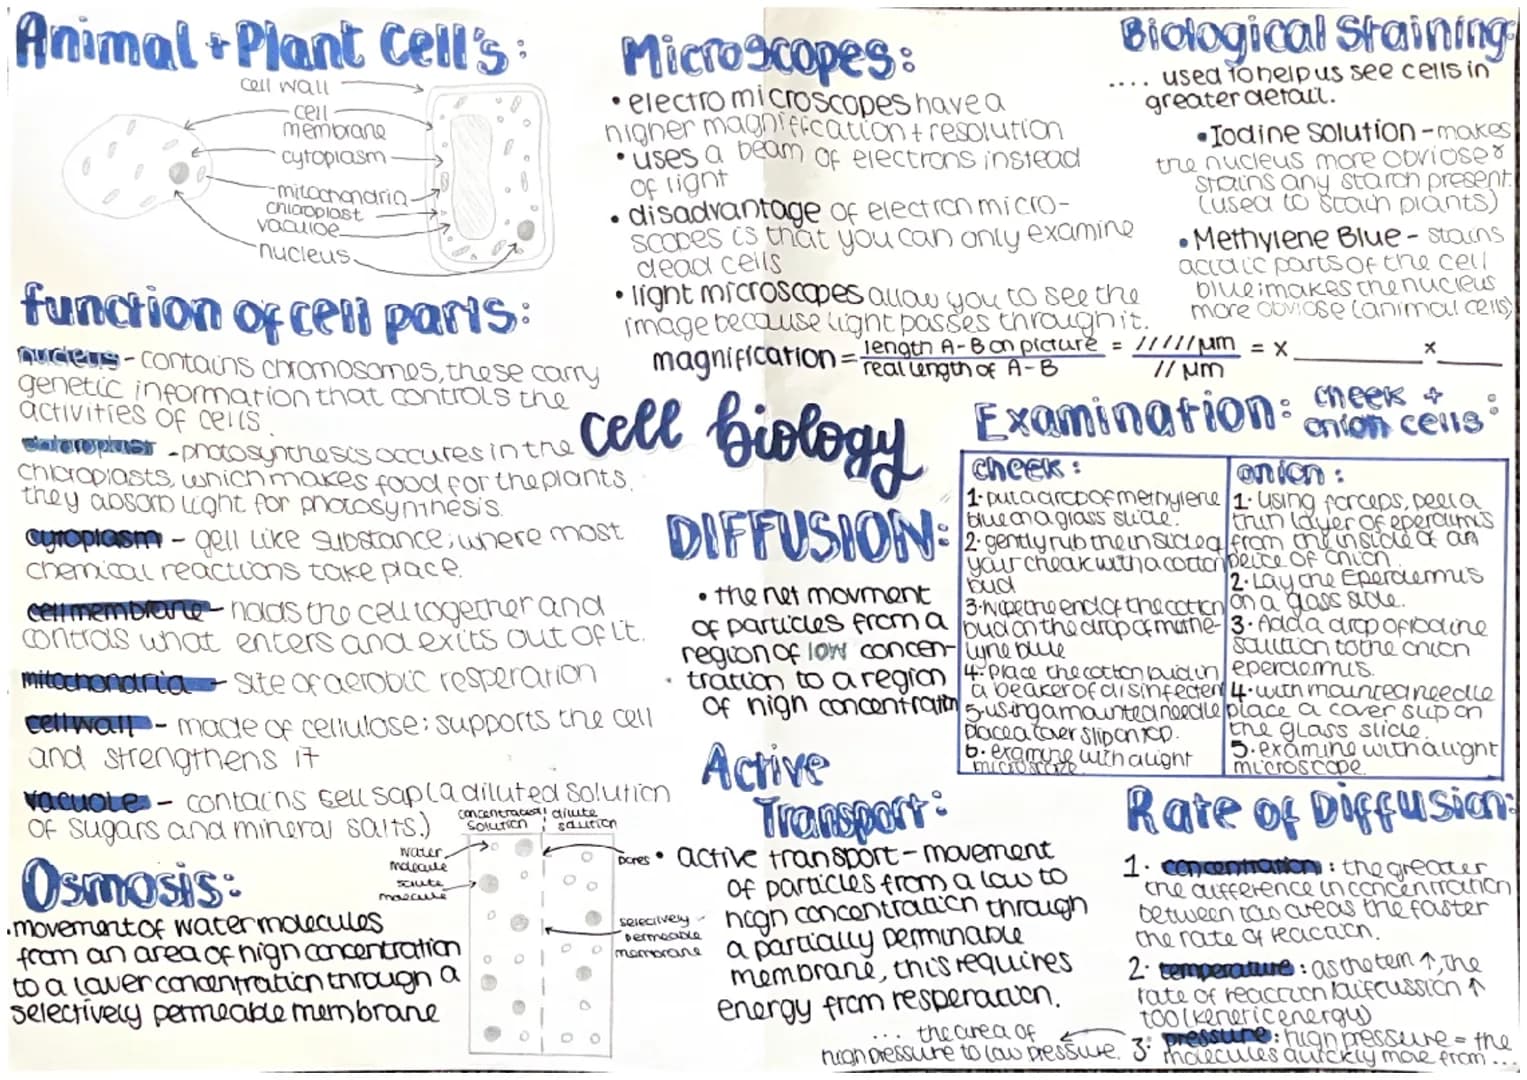 Animal + Plant Cell's:
cell wall
cell
membrane
cytoplasm
mitochondria
chloroplast
vacuole
nucleus
function of cell parts:
nucleus - contains chromosomes, these carry
genetic information that controls the
activities of cells.
chloroplast - photosynthesis occures in the
chloroplasts, which makes food for the plants.
they absorb light for photosynthesis.
cytoplasm - gell like substance; where most
chemical reactions take place.
cell membrane - holds the cell together and
controls what enters and exits out of it.
mitochondria - site of aerobic resperation
cell wall - made of cellulose: supports the cell
and strengthens it
vacuole - contains cell sap (a diluted solution
of sugars and mineral salts.)
Osmosis:
.movement of water molecules
from an area of high concentration
to a lower concentration through a
selectively permeable membrane
concentrated dilute
solution solution
water
molecule
solute
molecule
pores
selectively
permeable
membrane
Microscopes:
• electro microscopes have a
higher magnification + resolution
• uses a beam of electrons instead
of light
• disadvantage of electron micro-
scopes is that you can only examine
dead cells
• light microscopes allow you to see the
image because light passes through it.
magnification = length A-B on picture = /////µm = x x
real length of A-B // µm
cell biology
DIFFUSION:
• the net movment
of particles from a
region of low concen-
tration to a region
of high concentration
Active
Transport:
• active transport - movement
of particles from a low to
high concentration through
a partially perminable
membrane, this requires
energy from resperation.
Biological Staining:
.... used to help us see cells in
greater detail.
• Iodine solution - makes
the nucleus more obviose &
stains any starch present.
(used to stach plants)
• Methylene Blue - stains
acidic parts of the cell
blue: makes the nucleus
more obviose (animal cells)
Examination: cheek +
onion cells:
cheek:
1. put a drop of methylene
blue on a glass slide.
2. gently rub the inside of
your cheak with a cotton
bud
3. wipe the end of the cotton
bud on the drop of methe-
lyne blue
4. Place the cotton bud in
a beaker of disinfecten
5. using a mounted needle
place a cover slip on top.
6. examine with a light
microscope.
onion:
1. Using forceps, peel a
thin layer of eperdimis
from the inside of an
peice of onion.
2. Lay the Eperdemus
on a glass slide.
3. Add a drop of iodine
solution to the onion
eperdemis.
4. with mounted needle
place a cover slip on
the glass slide.
5. examine with a light
microscope.
Rate of Diffusion:
1. concentration: the greater
the difference in concentration
between two areas the faster
the rate of reaction.
2. temperature: as the tem ↑, the
rate of reaction ↑
too (keneric energy)
3: pressure: high pressure = the
molecules quickly move from ...
... the area of
high pressure to low pressure.